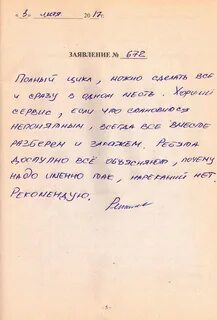 « 3 » мая 2017г.
ЗАЯВЛЕНИЕ № 672
Полный цикл, можно сделать все
и сразу в одном месте. Хороший
сервис, если что становится
непонятным, всегда все вместе
разберем и закажем. Ребята
доступно всё объясняют, почему
надо именно так, нареканий нет
Рекомендую.
- 5 -